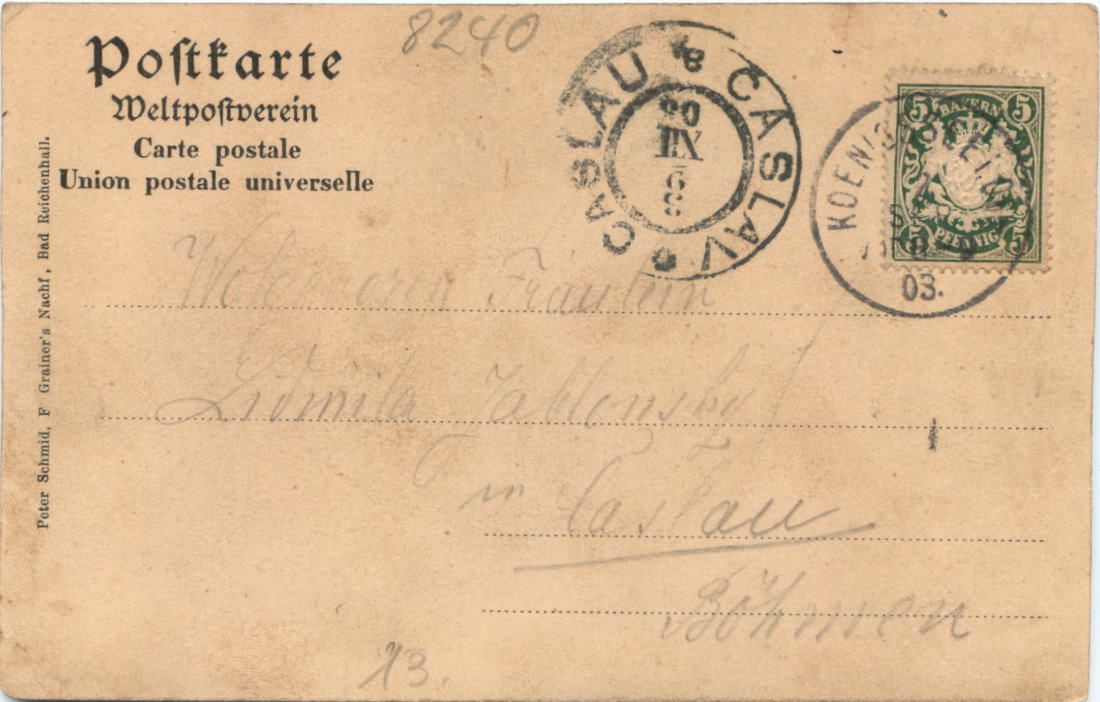 8240
Postkarte
Weltpostverein
Carte postale
Union postale universelle
Peter Schmid, F Grainer's Nachf, Bad Reichenhall.
CASLAU ČÁSLAV
XII
BAYERN
5 5
5 PFENNIG 5
03.
Fräulein
Ludmila Jablonsky
in Caslau
Böhmen
13.